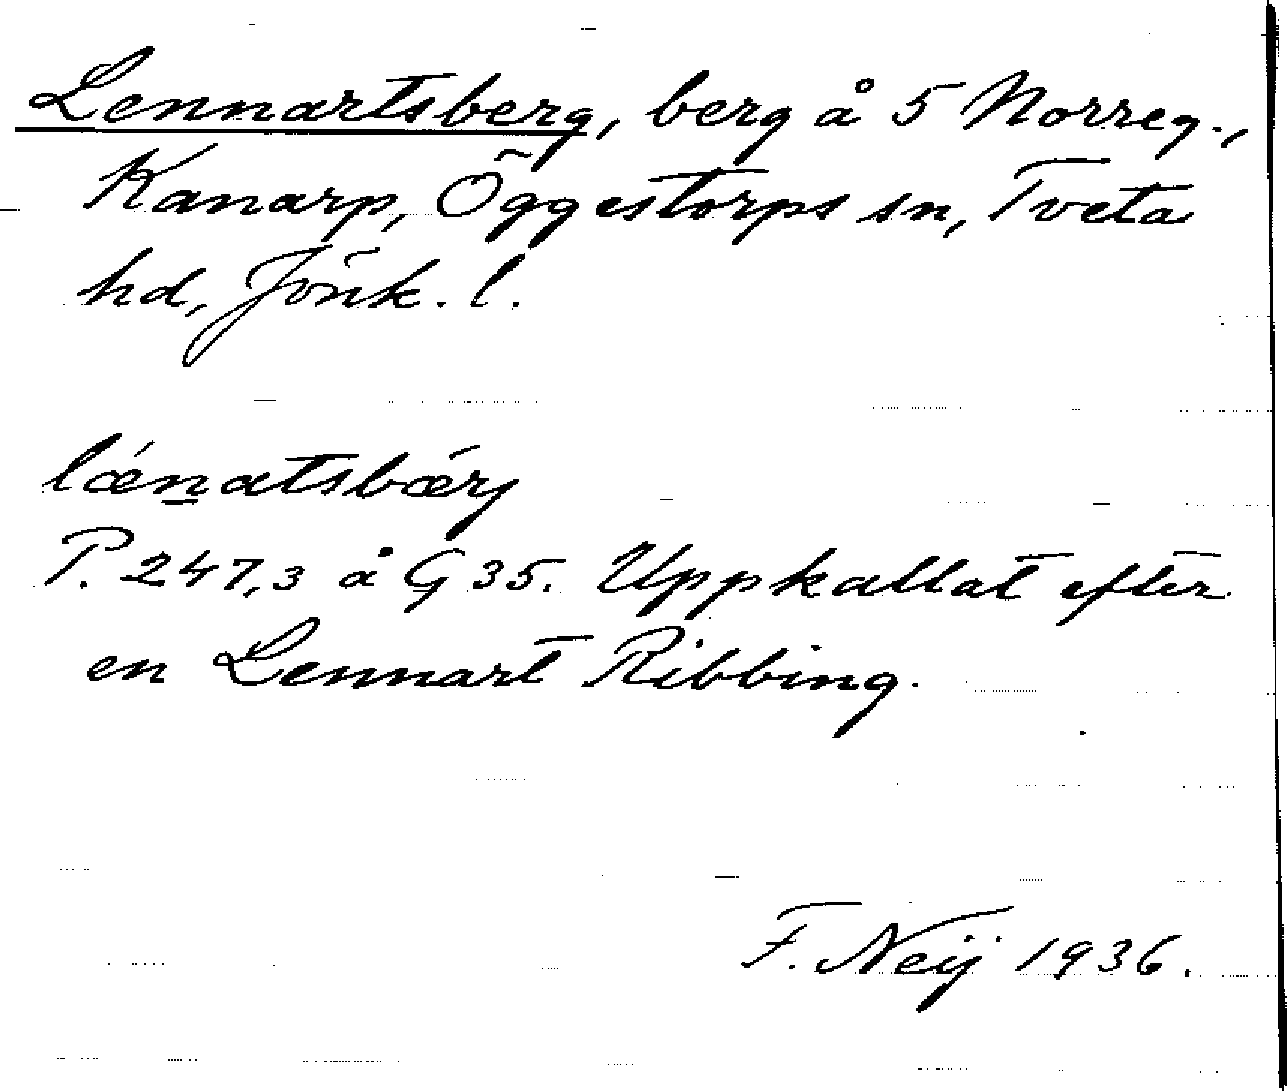 Lennartsberg, berg å 5 Norreg.,
Kanarp, Öggestorps sn, Tveta
hd, Jönk. l.
lǽn̲atsbǽrj
P. 247,3 å G 35. Uppkallat efter
en Lennart Ribbing.
F. Neij 1936.